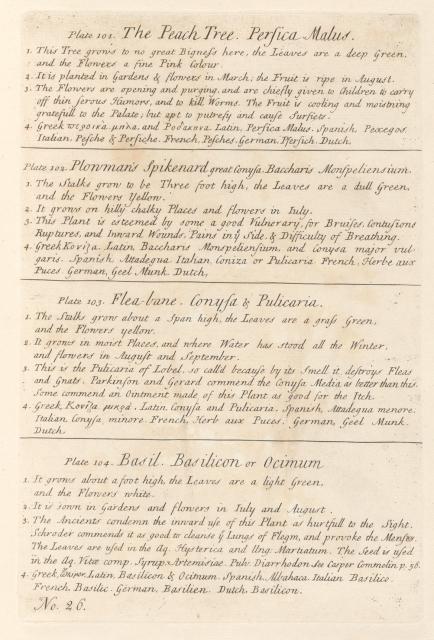 Plate 101. The Peach Tree. Persica Malus.
1. This Tree grows to no great Bigness here, the Leaves are a deep Green,
and the Flowers a fine Pink Colour.
2. It is planted in Gardens & flowers in March; the Fruit is ripe in August.
3. The Flowers are opening and purging, and are chiefly given to Children to carry
off thin serous Humors, and to kill Worms. The Fruit is cooling and moistning
gratefull to the Palate; but apt to putrefy and cause Surfeits.
4. Greek μηλα, and Latin, Persica Malus. Spanish, Pexegos.
Italian, Pesche & Persiche. French, Pesches. German, Pfersich. Dutch.
Plate 102. Plowman's Spikenard great Conysa. Baccharis Monspeliensium.
1. The Stalks grow to be Three foot high, the Leaves are a dull Green,
and the Flowers Yellow.
2. It grows on hilly chalky Places and flowers in Iuly.
3. This Plant is esteemed by some a good Vulnerary, for Bruises, Contusions
Ruptures, and Inward Wounds, Pains in ẙ Side, & Difficulty of Breathing.
4. Greek Κονιζα. Latin, Baccharis Monspeliensium, and Conysa major vul-
garis. Spanish, Attadegua Italian, Coniza or Pulicaria French, Herbe aux
Puces German, Geel Munk. Dutch,
Plate 103. Flea-bane. Conysa & Pulicaria.
1. The Stalks grow about a Span high, the Leaves are a grass Green,
and the Flowers yellow.
2. It grows in moist Places, and where Water has stood all the Winter,
and flowers in August and September.
3. This is the Pulicaria of Lobel, so call'd because by its Smell it destroys Fleas
and Gnats. Parkinson and Gerard commend the Conysa Media as better than this.
Some commend an Ointment made of this Plant as good for the Itch.
4. Greek, Κονιζα μικρα. Latin Conysa and Pulicaria. Spanish, Attadegua menore.
Italian, Conysa minore. French, Herb aux Puces. German, Geel Munk.
Dutch
Plate 104. Basil. Basilicon or Ocimum
1. It grows about a foot high, the Leaves are a light Green,
and the Flowers white.
2. It is sown in Gardens and flowers in Iuly and August.
3. The Ancients condemn the inward use of this Plant as hurtfull to the Sight.
Schroder commends it as good to cleanse ẙ Lungs of Flegm, and provoke the Menses.
The Leaves are used in the Aq. Hysterica and Ung. Martiatum. The Seed is used
in the Aq. Vitæ comp. Syrup. Artemisiae. Pulv. Diarrhodon See Casper Commolin p. 56.
4. Greek, Latin, Basilicon & Ocimum. Spanish, Albahaca. Italian Basilico.
French, Basilic. German, Basilien. Dutch, Basilicon.
No. 26.